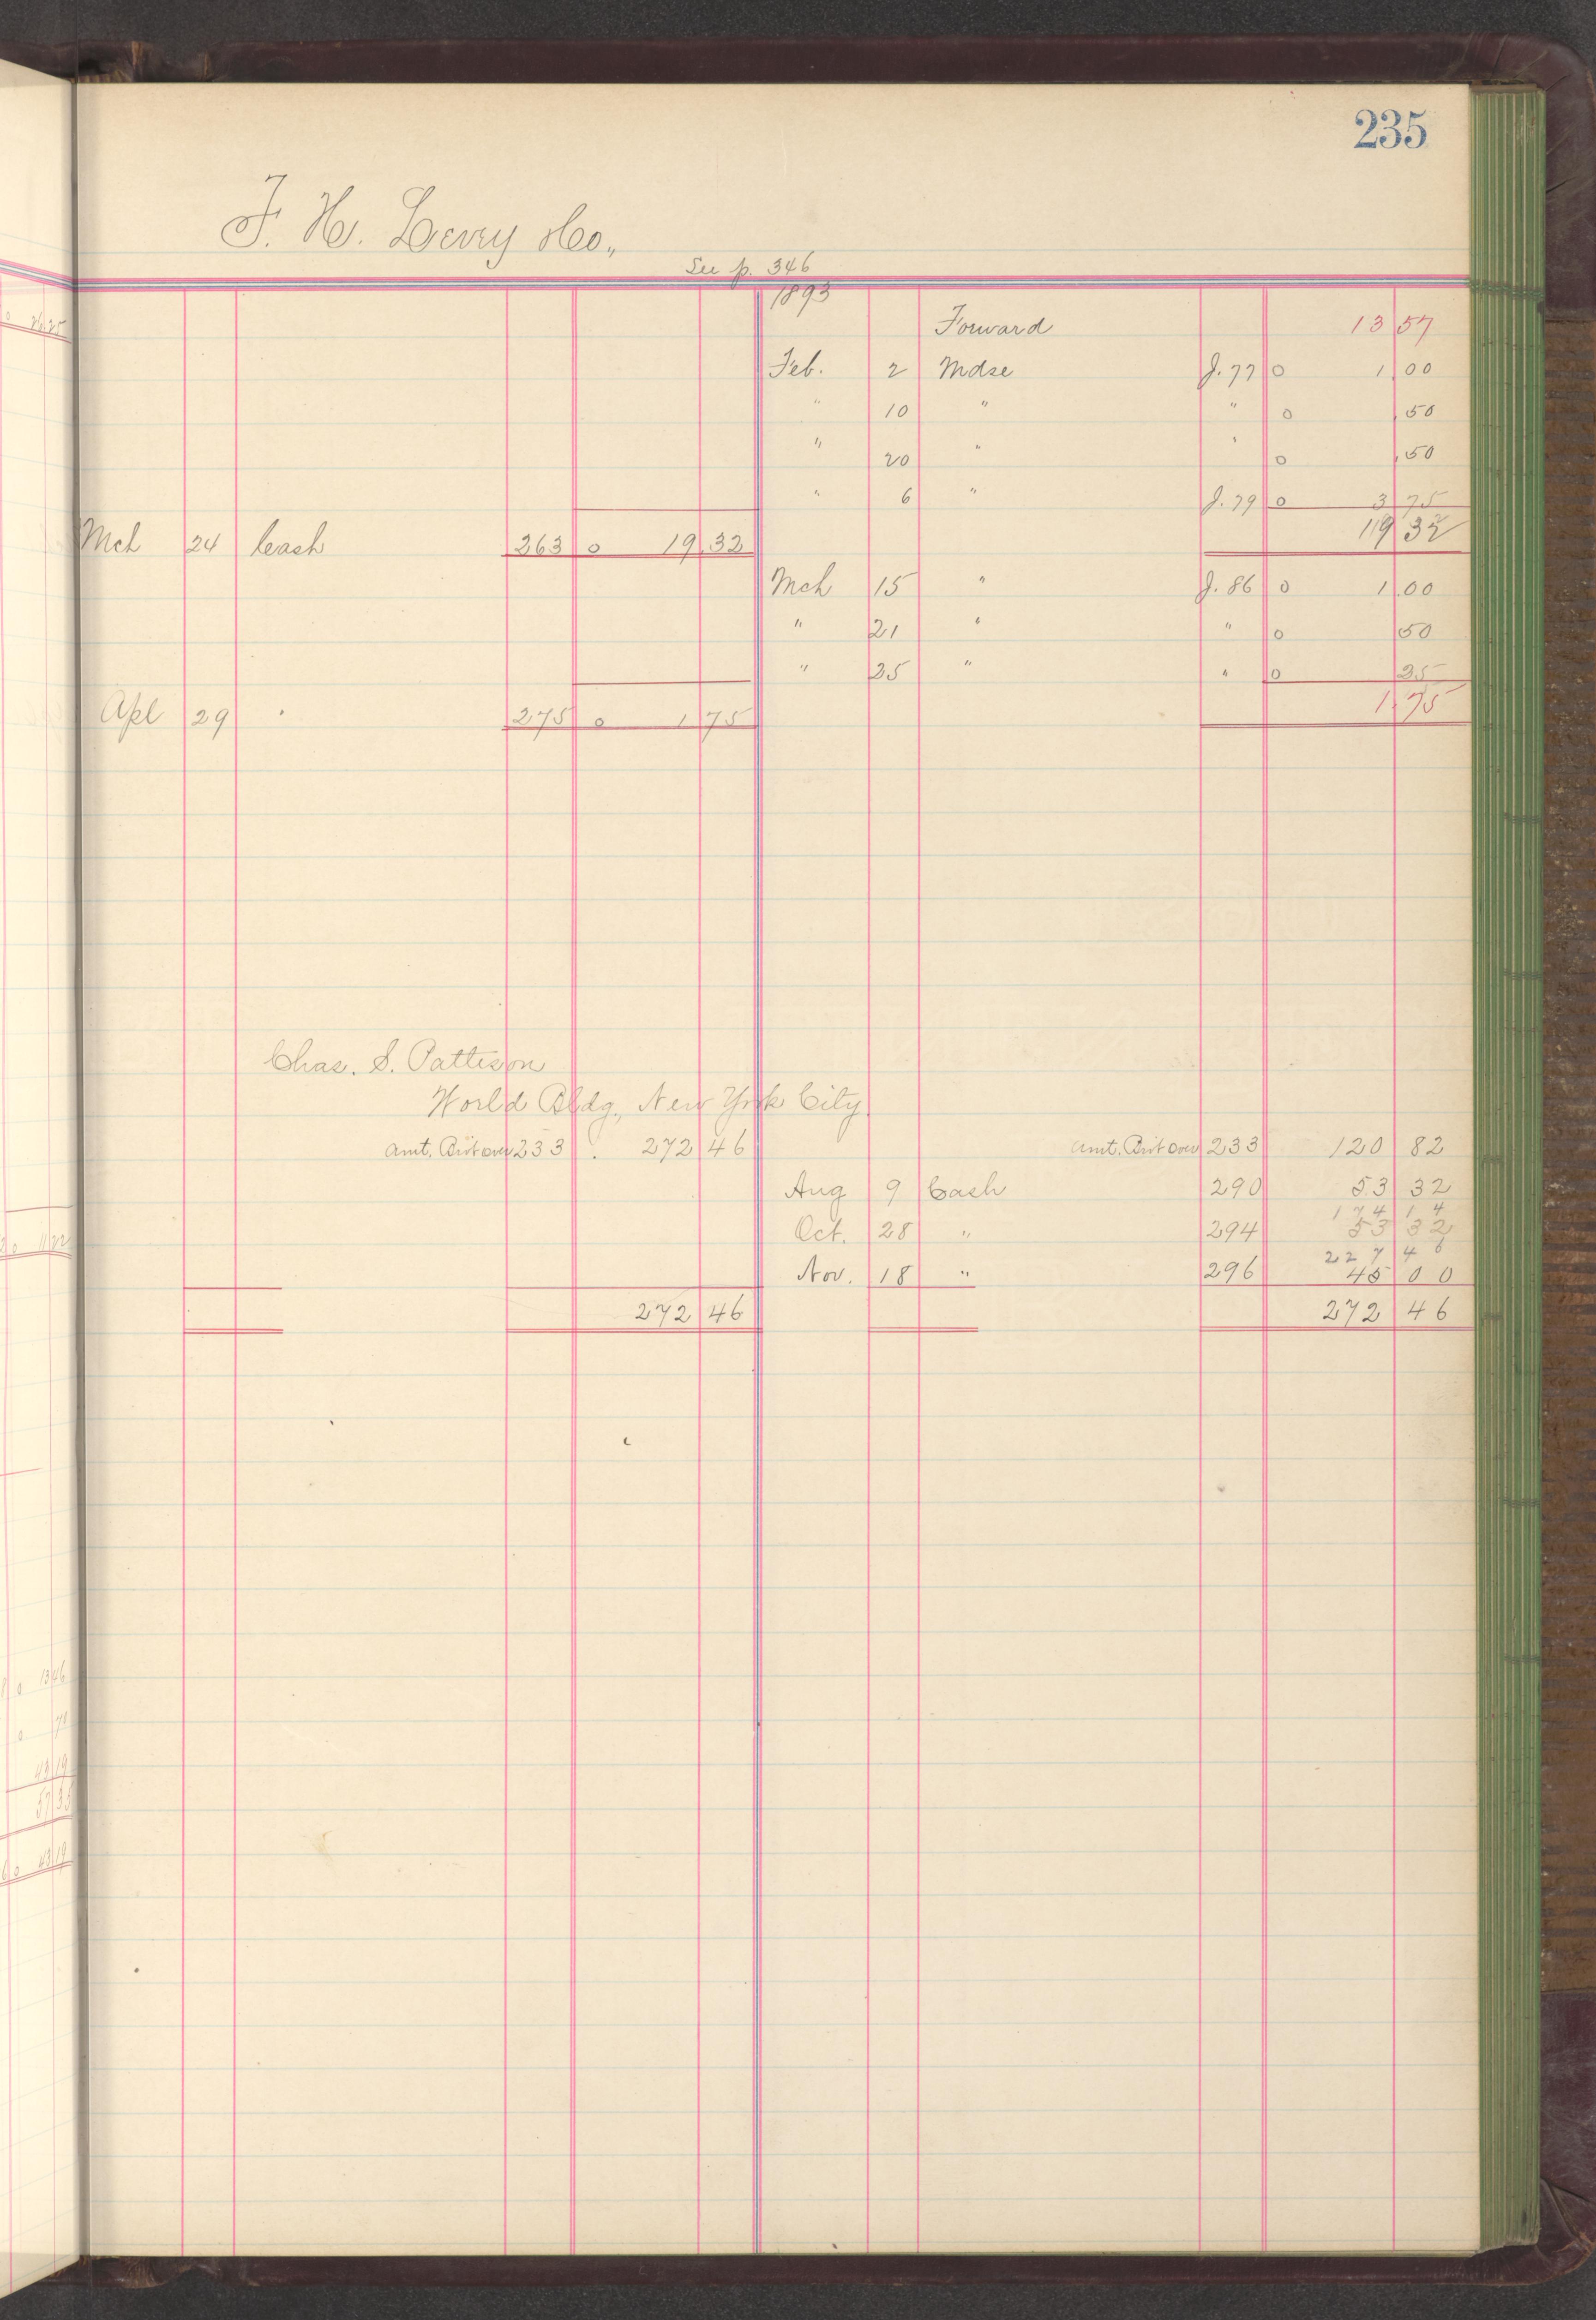 235
F. H. Levey Co.,
See p. 346
1893
Forward 13 57
Feb. 2 Mdse J. 77 0 1.00
" 10 " " 0 .50
" 20 " " 0 .50
" 6 " J. 79 0 3 75
19 32
Mch 24 Cash 263 0 19.32
Mch 15 " J. 86 0 1.00
" 21 " " 0 50
" 25 " " 0 25
1.75
Apl 29 " 275 0 1 75
Chas. S. Pattison
World Bldg., New York City
Amt. Br't over 233 272 46 Amt. Br't over 233 120 82
Aug 9 Cash 290 53 32
174 14
Oct. 28 " 294 53 32
227 46
Nov. 18 " 296 45 00
272 46 272 46